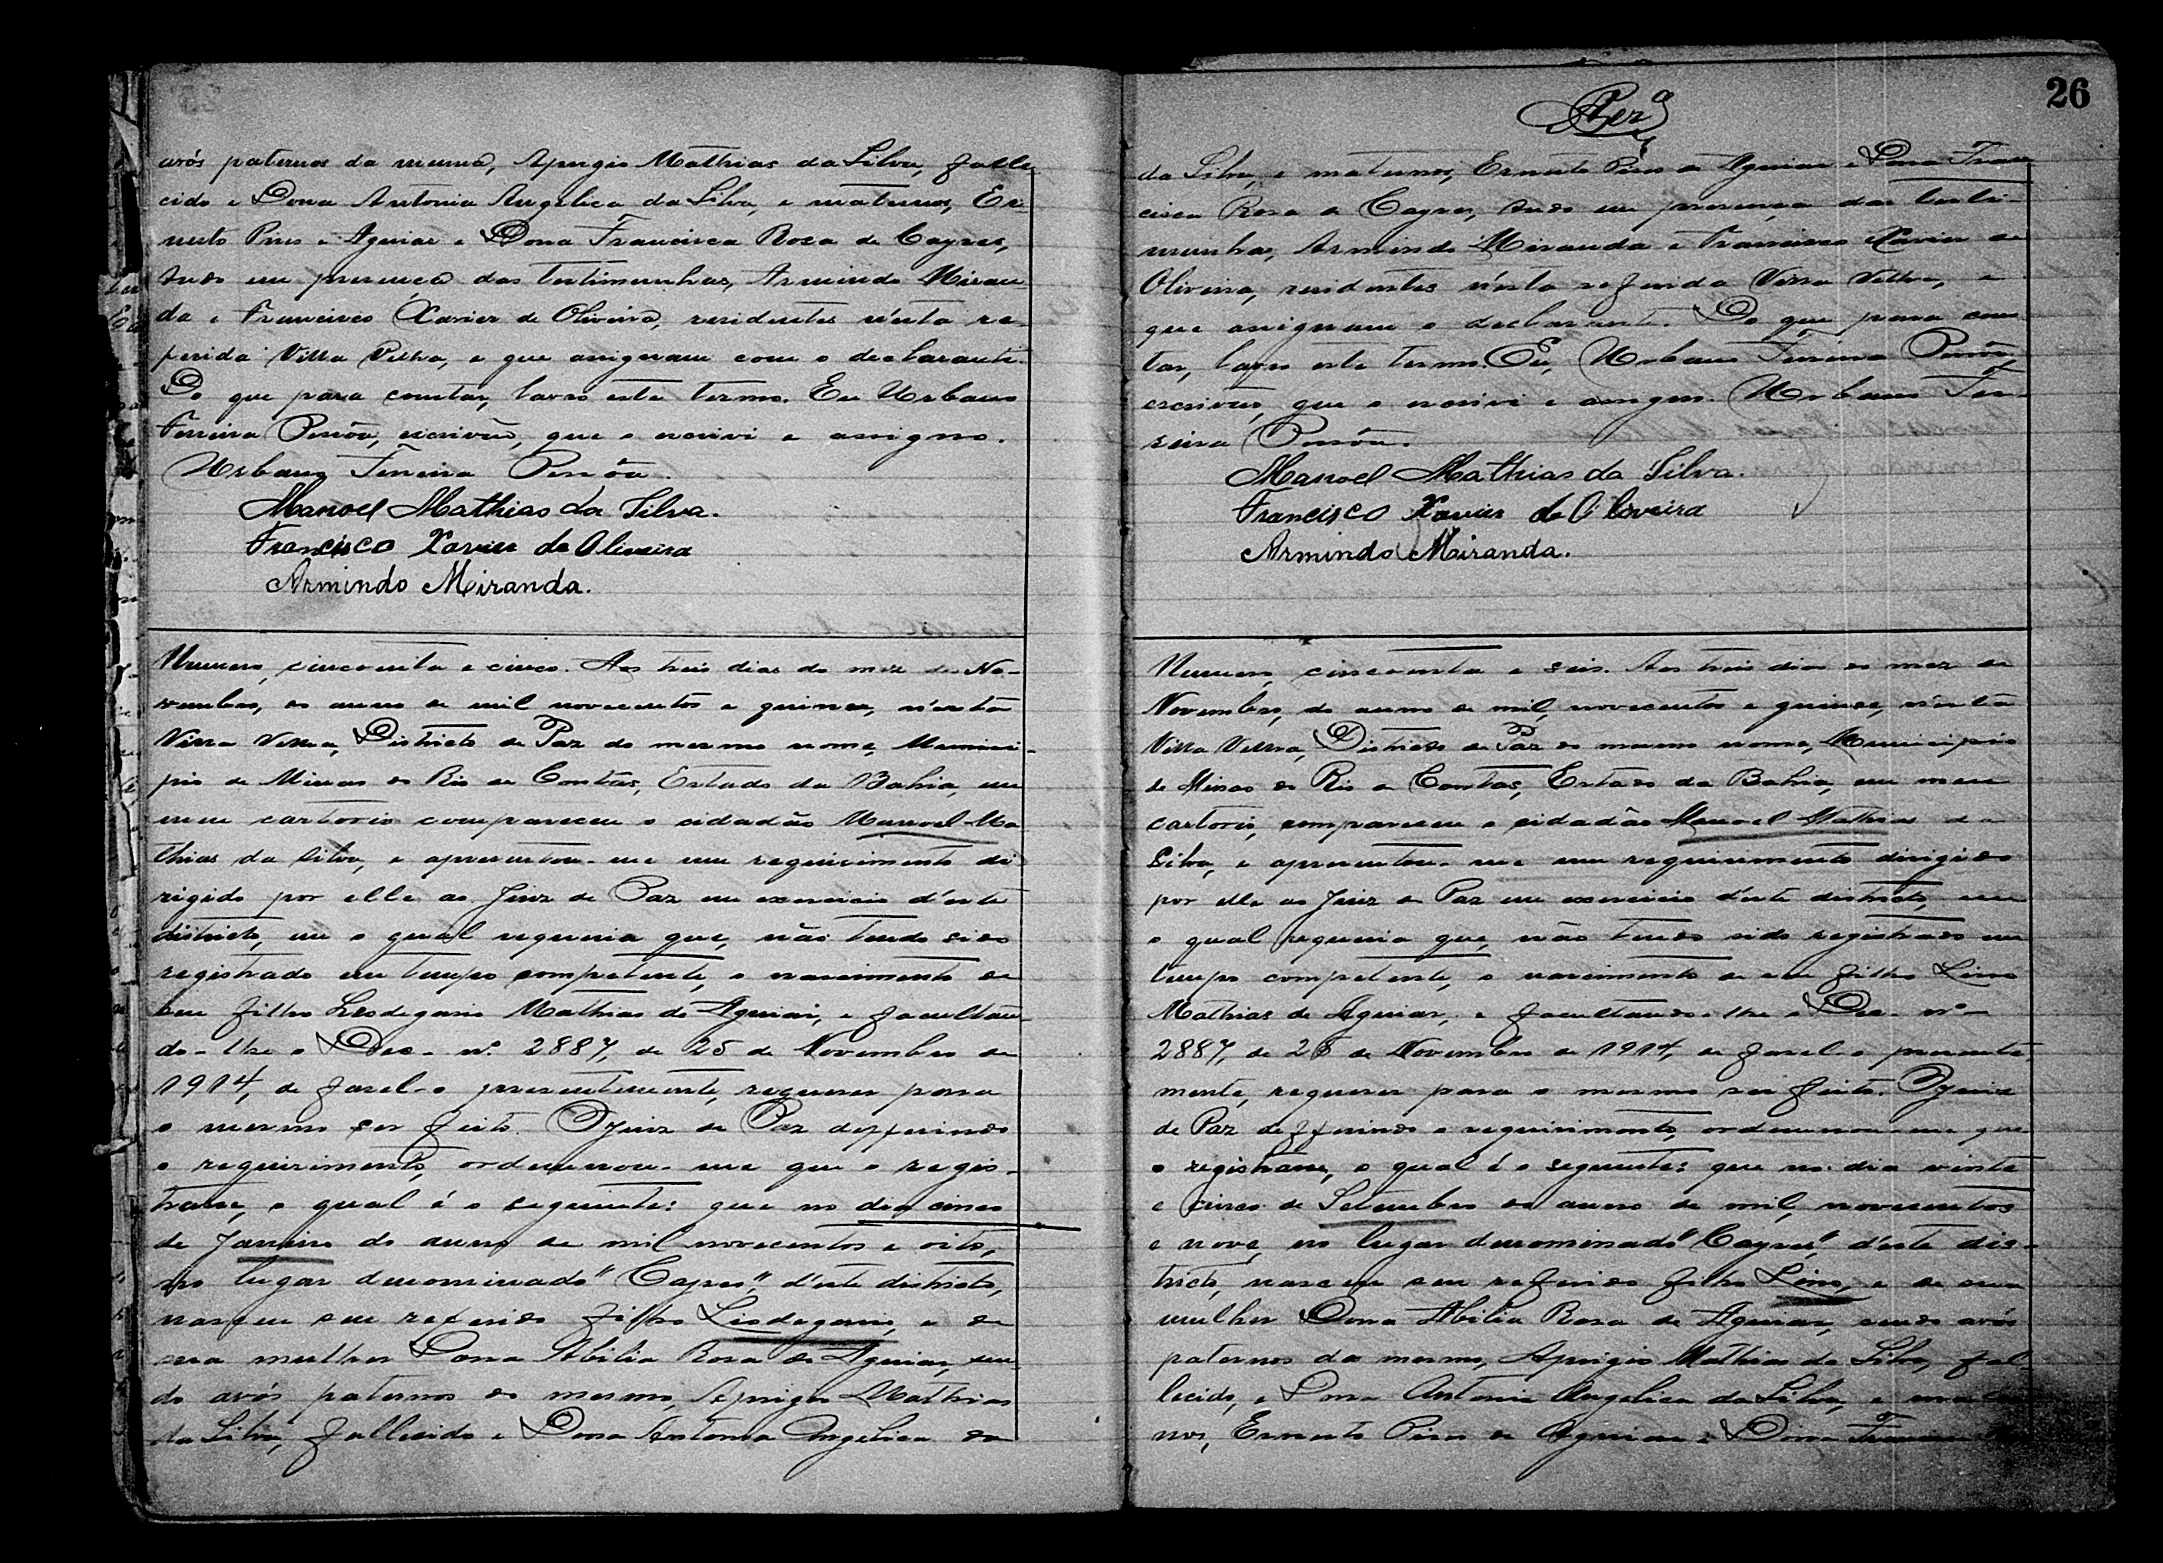 avós paternos da mesma, Aprigio Mathias da Silva, falle
cido e Dona Antonia Angelica da Silva, e maternos, Er-
nesto Pires e Aguiar e Dona Francisca Rosa de Cayres,
tudo em presença das testimunhas, Armindo Miran
da e Francisco Xavier de Oliveira, residentes n'esta re-
ferida Villa Velha, e que assignam com o declarante.
Do que para constar, lavro este termo. Eu Urbano
Ferreira Pessôa, escrivão, que o escrivi e assigno.
Urbano Ferreira Pessôa.
Manoel Mathias da Silva.
Francisco Xavier de Oliveira
Armindo Miranda.
Numero, cincoenta e cinco. Aos treis dias do mez de No-
vembro, do anno de mil novecentos e quinze, n'esta
Villa Velha, Districto de Paz do mesmo nome, Munici-
pio de Minas do Rio de Contas, Estado da Bahia, em
meu cartorio compareceu o cidadão Manoel Ma
thias da Silva, e apresentou-me um requirimento di
rigido por elle ao Juiz de Paz em exercicio d'este
districto, em o qual requeria que, não tendo sido
registrado em tempo competente, o nascimento de
seu filho Leodegario Mathias de Aguiar, e facultan
do-lhe o Dec. nº 2887, de 25 de Novembro de
1914, de fazel-o presentemente, requerer para
o mesmo ser feito. O Juiz de Paz defferindo
o requirimento, ordennou-me que o regis-
trasse, o qual é o seguinte: que no dia cinco
de Janeiro do anno de mil novecentos e oito,
no lugar denominado "Cayres", d'este districto,
nasceu seu referido filho Leodegario, e de
sua mulher Dona Abilia Rosa de Aguiar, sen
do avós paternos do mesmo, Aprigio Mathias
da Silva, fallecido e Dona Antonia Angelica da
26
da Silva, e maternos, Ernesto Pires de Aguiar e Dona Fran
cisca Rosa de Cayres, tudo em presença das testi-
munhas, Armindo Miranda e Francisco Xavier de
Oliveira, residentes n'esta referida Villa Velha, e
que assignam o declarante. Do que para cons
tar, lavro este termo. Eu, Urbano Ferreira Pessôa,
escrivão, que o escrivi e assigno. Urbano Fer-
reira Pessôa.
Manoel Mathias da Silva.
Francisco Xavier de Oliveira
Armindo Miranda.
Numero, cincoenta e seis. Aos treis dias do mez de
Novembro, do anno de mil, novecentos e quinze, n'esta
Villa Velha, Districto de Paz do mesmo nome, Municipio
de Minas do Rio de Contas, Estado da Bahia, em meu
cartorio, compareceu o cidadão Manoel Mathias da
Silva, e apresentou-me um requirimento dirigido
por elle ao Juiz de Paz em exercicio d'este districto, em
o qual requeria que, não tendo sido registrado em
tempo competente, o nascimento de seu filho Lino
Mathias de Aguiar, e facultando-lhe o Dec. nº
2887, de 25 de Novembro de 1914, de fazel-o presente
mente, requerer para o mesmo ser feito. O Juiz
de Paz defferindo o requirimento, ordennou-me que
o registrasse, o qual é o seguinte: que no dia vinte
e cinco de Setembro do anno de mil, novecentos
e nove, no lugar denominado "Cayres", d'este dis-
tricto, nasceu seu referido filho Lino, e de sua
mulher Dona Abilia Rosa de Aguiar, sendo avós
paternos do mesmo, Aprigio Mathias da Silva, fal
lecido, e Dona Antonia Angelica da Silva, e
nos, Ernesto Pires de Aguiar e Dona